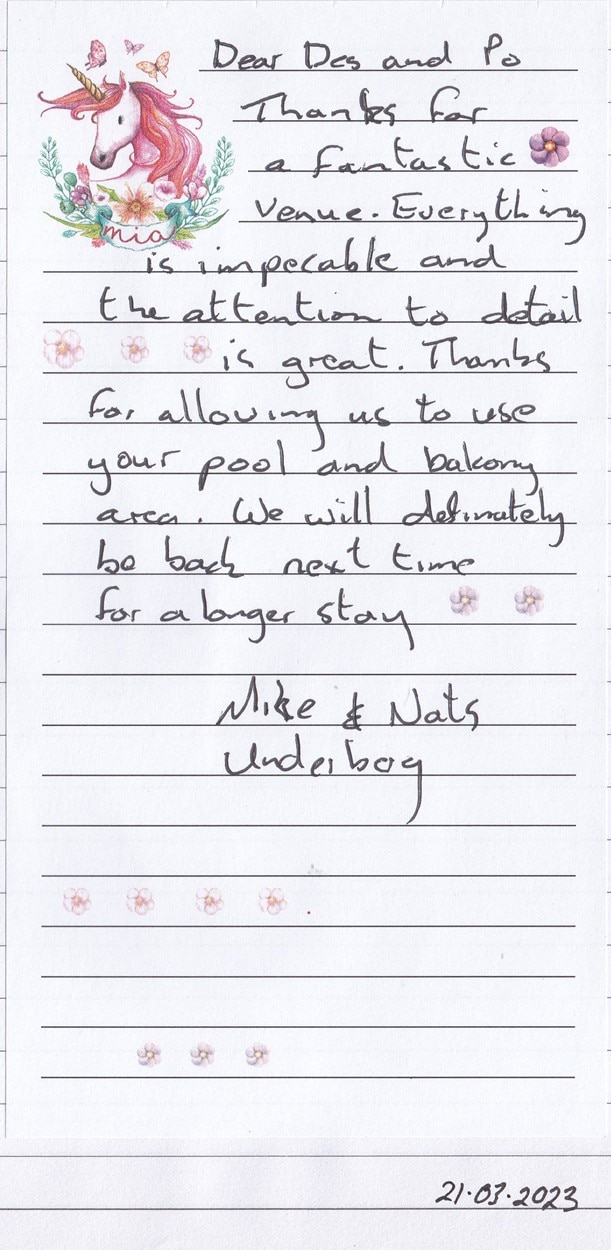 Dear Des and Po
Thanks for
a fantastic
venue. Everything
mia
is impecable and
the attention to detail
is great. Thanks
for allowing us to use
your pool and balcony
area. We will definately
be back next time
for a longer stay
Mike & Nats
Underbog
21.03.2023